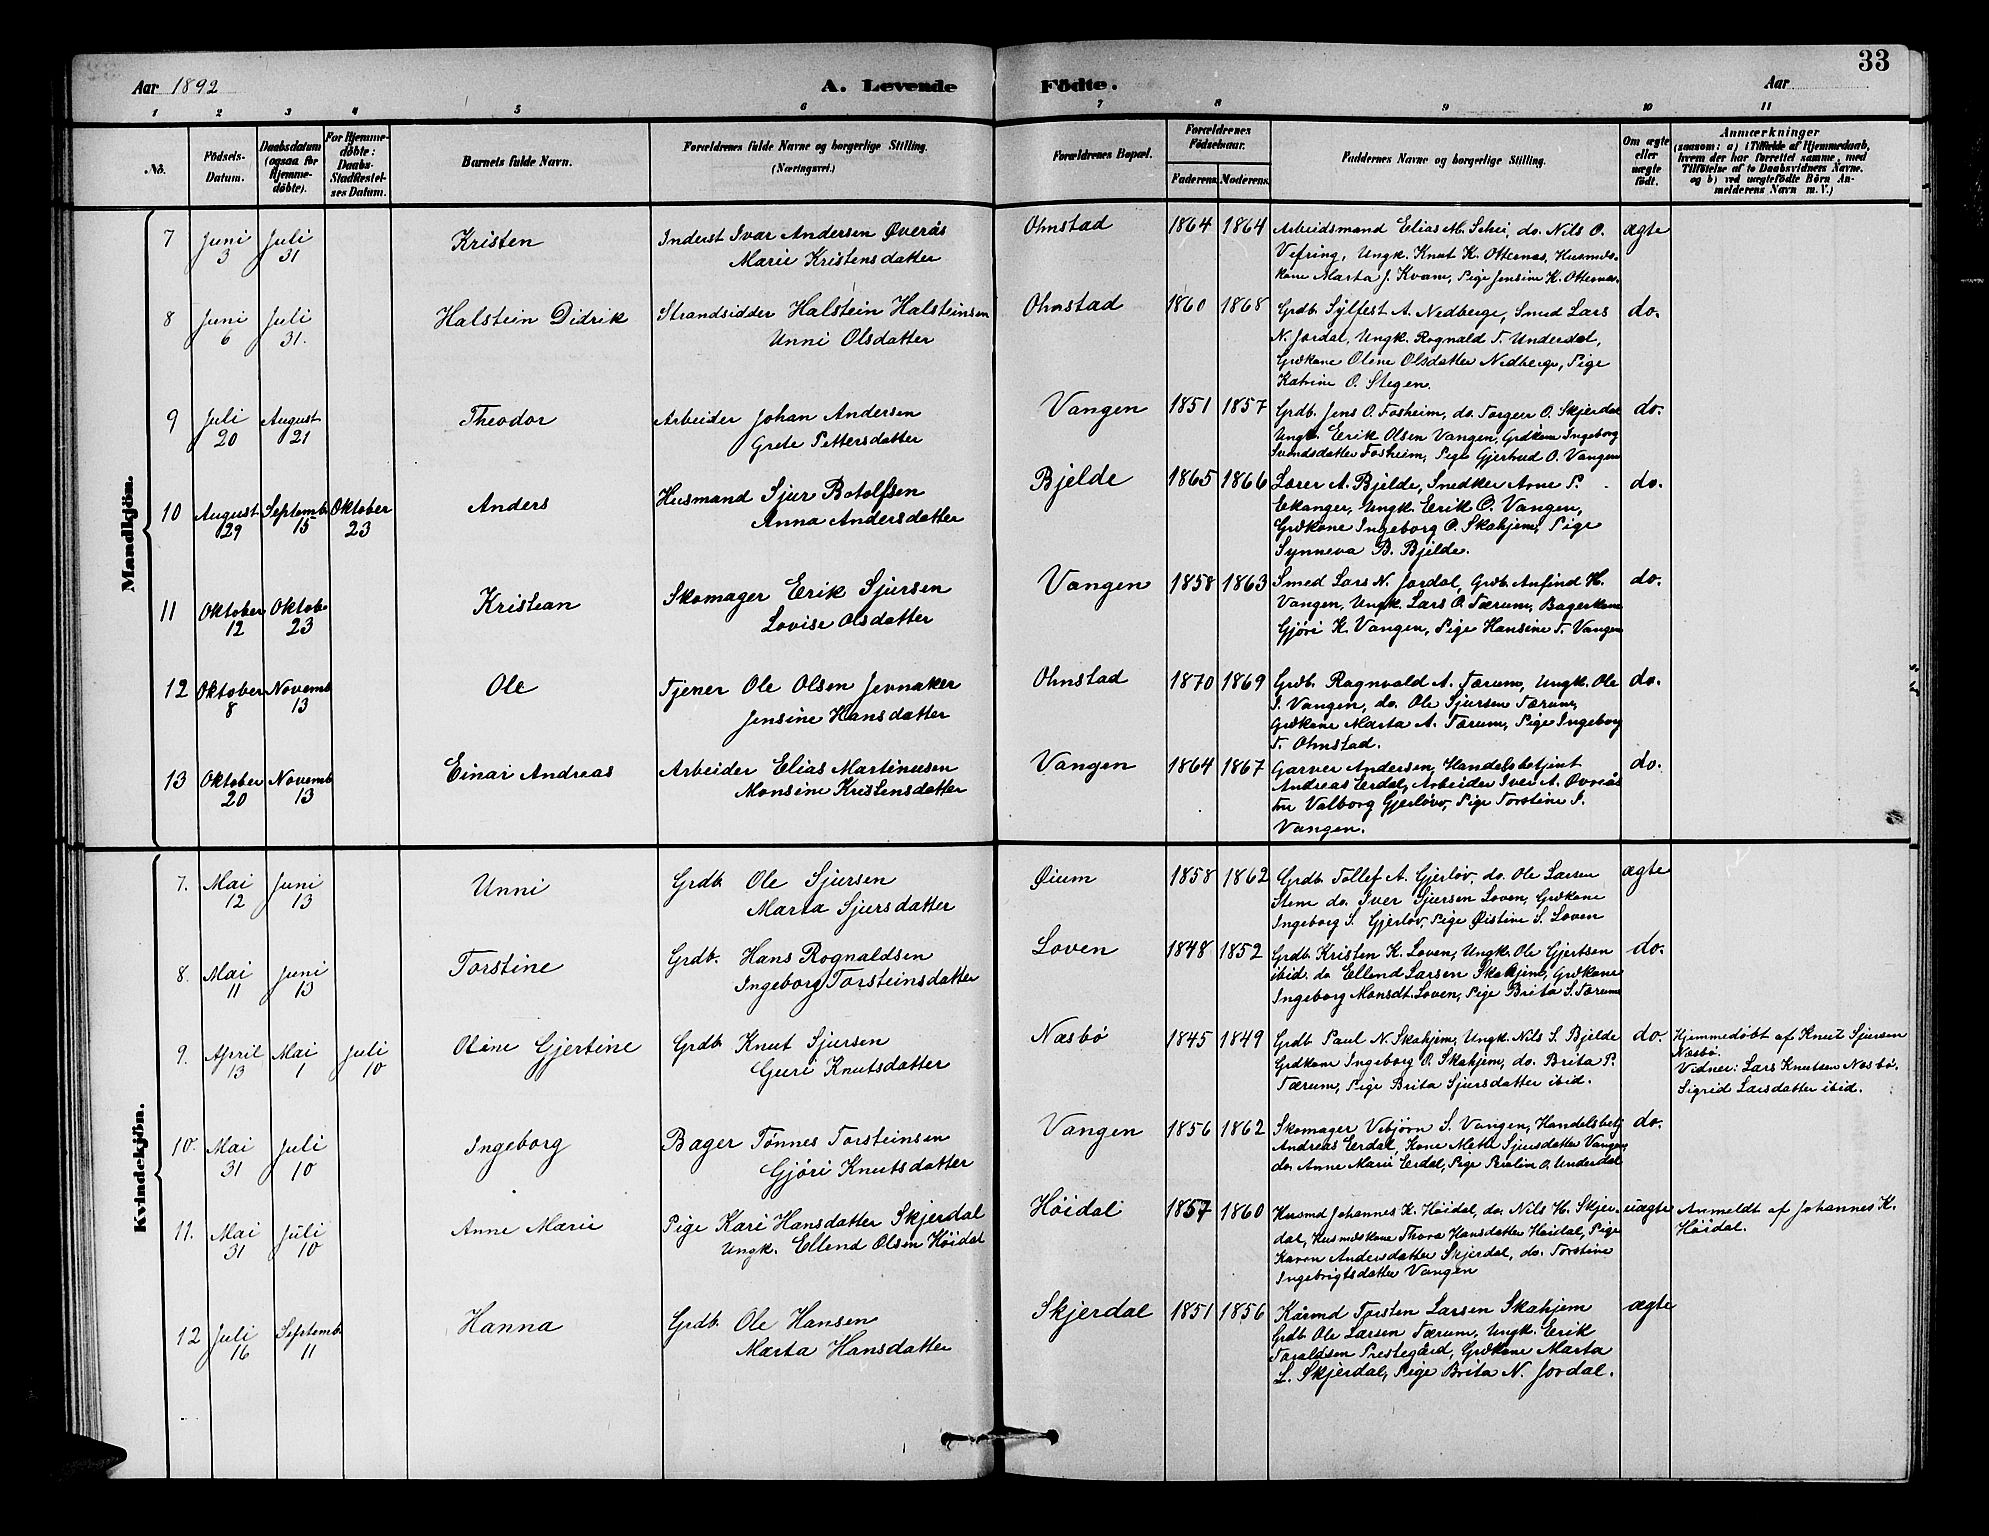 33
Aar 1892
A. Levende Födte.
Aar
1 2 3 4 5 6 7 8 9 10 11
No.
Födsels-Datum.
Daabsdatum (ogsaa for Hjemme-döbte).
For Hjemme-döbte: Daabs-Stadfæstel-ses Datum.
Barnets fulde Navn.
Forældrenes fulde Navne og borgerlige Stilling.
(Næringsvei.)
Forældrenes Bopæl.
Forældrenes Födselsaar.
Faderens. Moderens.
Faddernes Navne og borgerlige Stilling.
Om ægte eller uægte födt.
Anmærkninger
(saasom: a) i Tilfælde af Hjemmedaab,
hvem der har forrettet samme, med
Tilföielse af to Daabsvidners Navne.
og b) ved uægtefödte Börn An-
melderens Navn m. V.)
Mandkjön.
7 Juni 3 Juli 31 Kristen
Inderst Ivar Andersen Øverås
Marie Kristensdatter
Ohnstad 1864 1864
Arbeidsmand Elias M. Schei, do. Nils O.
Vefring, Ungk. Knut K. Otternæs, Husmds-
kone Marta J. Kvam, Pige Jensine K. Otternæs.
ægte
8 Juni 6 Juli 31. Halstein Didrik
Strandsidder Halstein Halsteinsen
Unni Olsdatter
Ohnstad 1860 1868
Grdb. Sylfest A. Nedberge, Smed Lars
N. Jordal, Ungk. Rognald T. Underdal,
Grdkone Oline Olsdatter Nedberge, Pige
Katrine O. Stegen.
do.
9 Juli 20 August 21 Theodor
Arbeider Johan Andersen
Grete Pettersdatter
Vangen 1851 1857
Grdb. Jens O. Fosheim, do. Torgeir O. Skjerdal
Ungk. Erik Olsen Vangen, Grdkone Ingeborg
Svendsdatter Fosheim, Pige Gjertrud O. Vangen
do.
10 August 29 Septemb. 15 Oktober 23 Anders
Husmand Sjur Botolfsen
Anna Andersdatter
Bjelde 1865 1866
Lærer A. Bjelde, Snedker Arne P.
Ekanger, Ungk. Erik O. Vangen,
Grdkone Ingeborg O. Skahjem, Pige
Synneva B. Bjelde.
do.
11 Oktober 12 Oktob. 23 Kristian
Skomager Erik Sjursen
Lovise Olsdatter
Vangen 1858 1863
Smed Lars N. Jordal, Grdb. Anfind H.
Vangen, Ungk. Lars O. Tærum, Bagerkone
Gjöri K. Vangen, Pige Hansine T. Vangen
do.
12 Oktober 8 Novemb 13 Ole
Tjener Ole Olsen Jevnaker
Jensine Hansdatter
Ohnstad 1870 1869
Grdb. Ragnvald A. Tærum, Ungk. Ole
I. Vangen, do. Ole Sjursen Tærum,
Grdkone Marta A. Tærum, Pige Ingeborg
T. Ohnstad.
do.
13 Oktober 20 Novemb 13 Einar Andreas
Arbeider Elias Martinusen
Monsine Kristensdatter
Vangen 1864 1867
Garver Andersen, Handelsbetjent
Andreas Erdal, Arbeider Iver A. Øvreås
Fru Valborg Gjerløv, Pige Torstine I.
Vangen.
do.
Kvindekjön.
7. Mai 12 Juni 13 Unni
Grdb. Ole Sjursen
Marta Sjursdatter
Øium 1858 1862
Grdb. Tollef A. Gjerløv, do. Ole Larsen
Stene do. Iver Sjursen Loven, Grdkone
Ingeborg S. Gjerløv, Pige Øistine S. Loven
ægte
8. Mai 11 Juni 13 Torstine
Grdb. Hans Rognaldsen
Ingeborg Torsteinsdatter
Loven 1848 1852
Grdb. Kristen K. Loven, Ungk. Ole Gjertsen
ibid. do Ellend Larsen Skahjem, Grdkone
Ingeborg Monsdt. Loven, Pige Brita S. Tærum
do.
9. April 13 Mai 1 Juli 10 Oline Gjertine
Grdb. Knut Sjursen
Guri Knutsdatter
Næsbø 1845 1849
Grdb. Paul N. Skahjem, Ungk. Nils S. Bjelde
Grdkone Ingeborg P. Skahjem, do. Brita P.
Tærum, Pige Brita Sjursdatter ibid.
do.
Hjemmedøbt af Knut Sjursen
Næsbø.
Vidner: Lars Knutsen Næsbø.
Sigrid Larsdatter ibid.
10. Mai 31 Juli 10 Ingeborg
Bager Tønnes Torsteinsen
Gjøri Knutsdatter
Vangen 1856 1862
Skomager Vebjørn S. Vangen, Handelsbetj.
Andreas Erdal, Kone Mette Sjursdatter Vangen,
do. Anne Marie Erdal, Pige Perlin O. Underdal
do.
11. Mai 31 Juli 10 Anne Marie
Pige Kari Hansdatter Skjerdal
Ungk. Ellend Olsen Høidal
Høidal 1857 1860
Husmd Johannes K. Høidal, do. Nils H. Skjer-
dal, Husmdskone Thora Hansdatter Høidal, Pige
Karen Andersdatter Skjerdal, do. Torstine
Ingebrigtsdatter Vangen
uægte
Anmeldt af Johannes K.
Høidal.
12 Juli 16 Septemb. 11 Hanna
Grdb. Ole Hansen
Marta Hansdatter
Skjerdal 1851 1856
Kårmd Torsten Larsen Skahjem
Grdb. Ole Larsen Tærum, Ungk. Erik
Taraldsen Prestegård, Grdkone Marta
L. Skjerdal, Pige Brita N. Jordal.
ægte